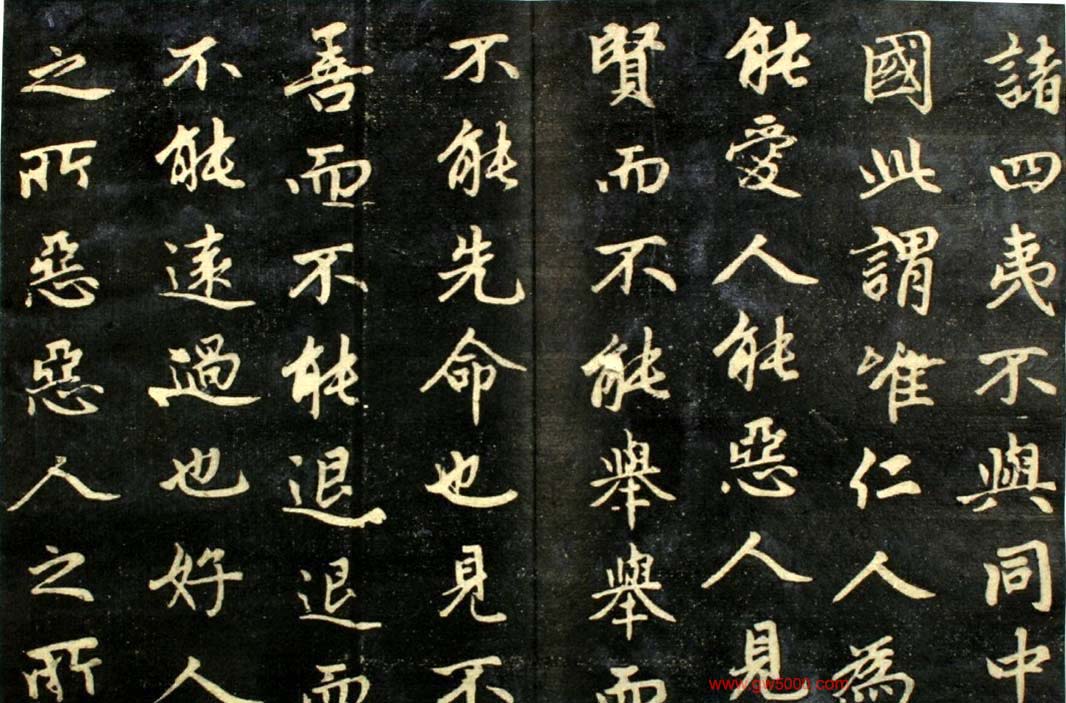 諸四夷不與同中
國此謂唯仁人為
能愛人能惡人見
賢而不能舉舉而
不能先命也見不
善而不能退退而
不能遠過也好人
之所惡惡人之所
www.gw5000.com